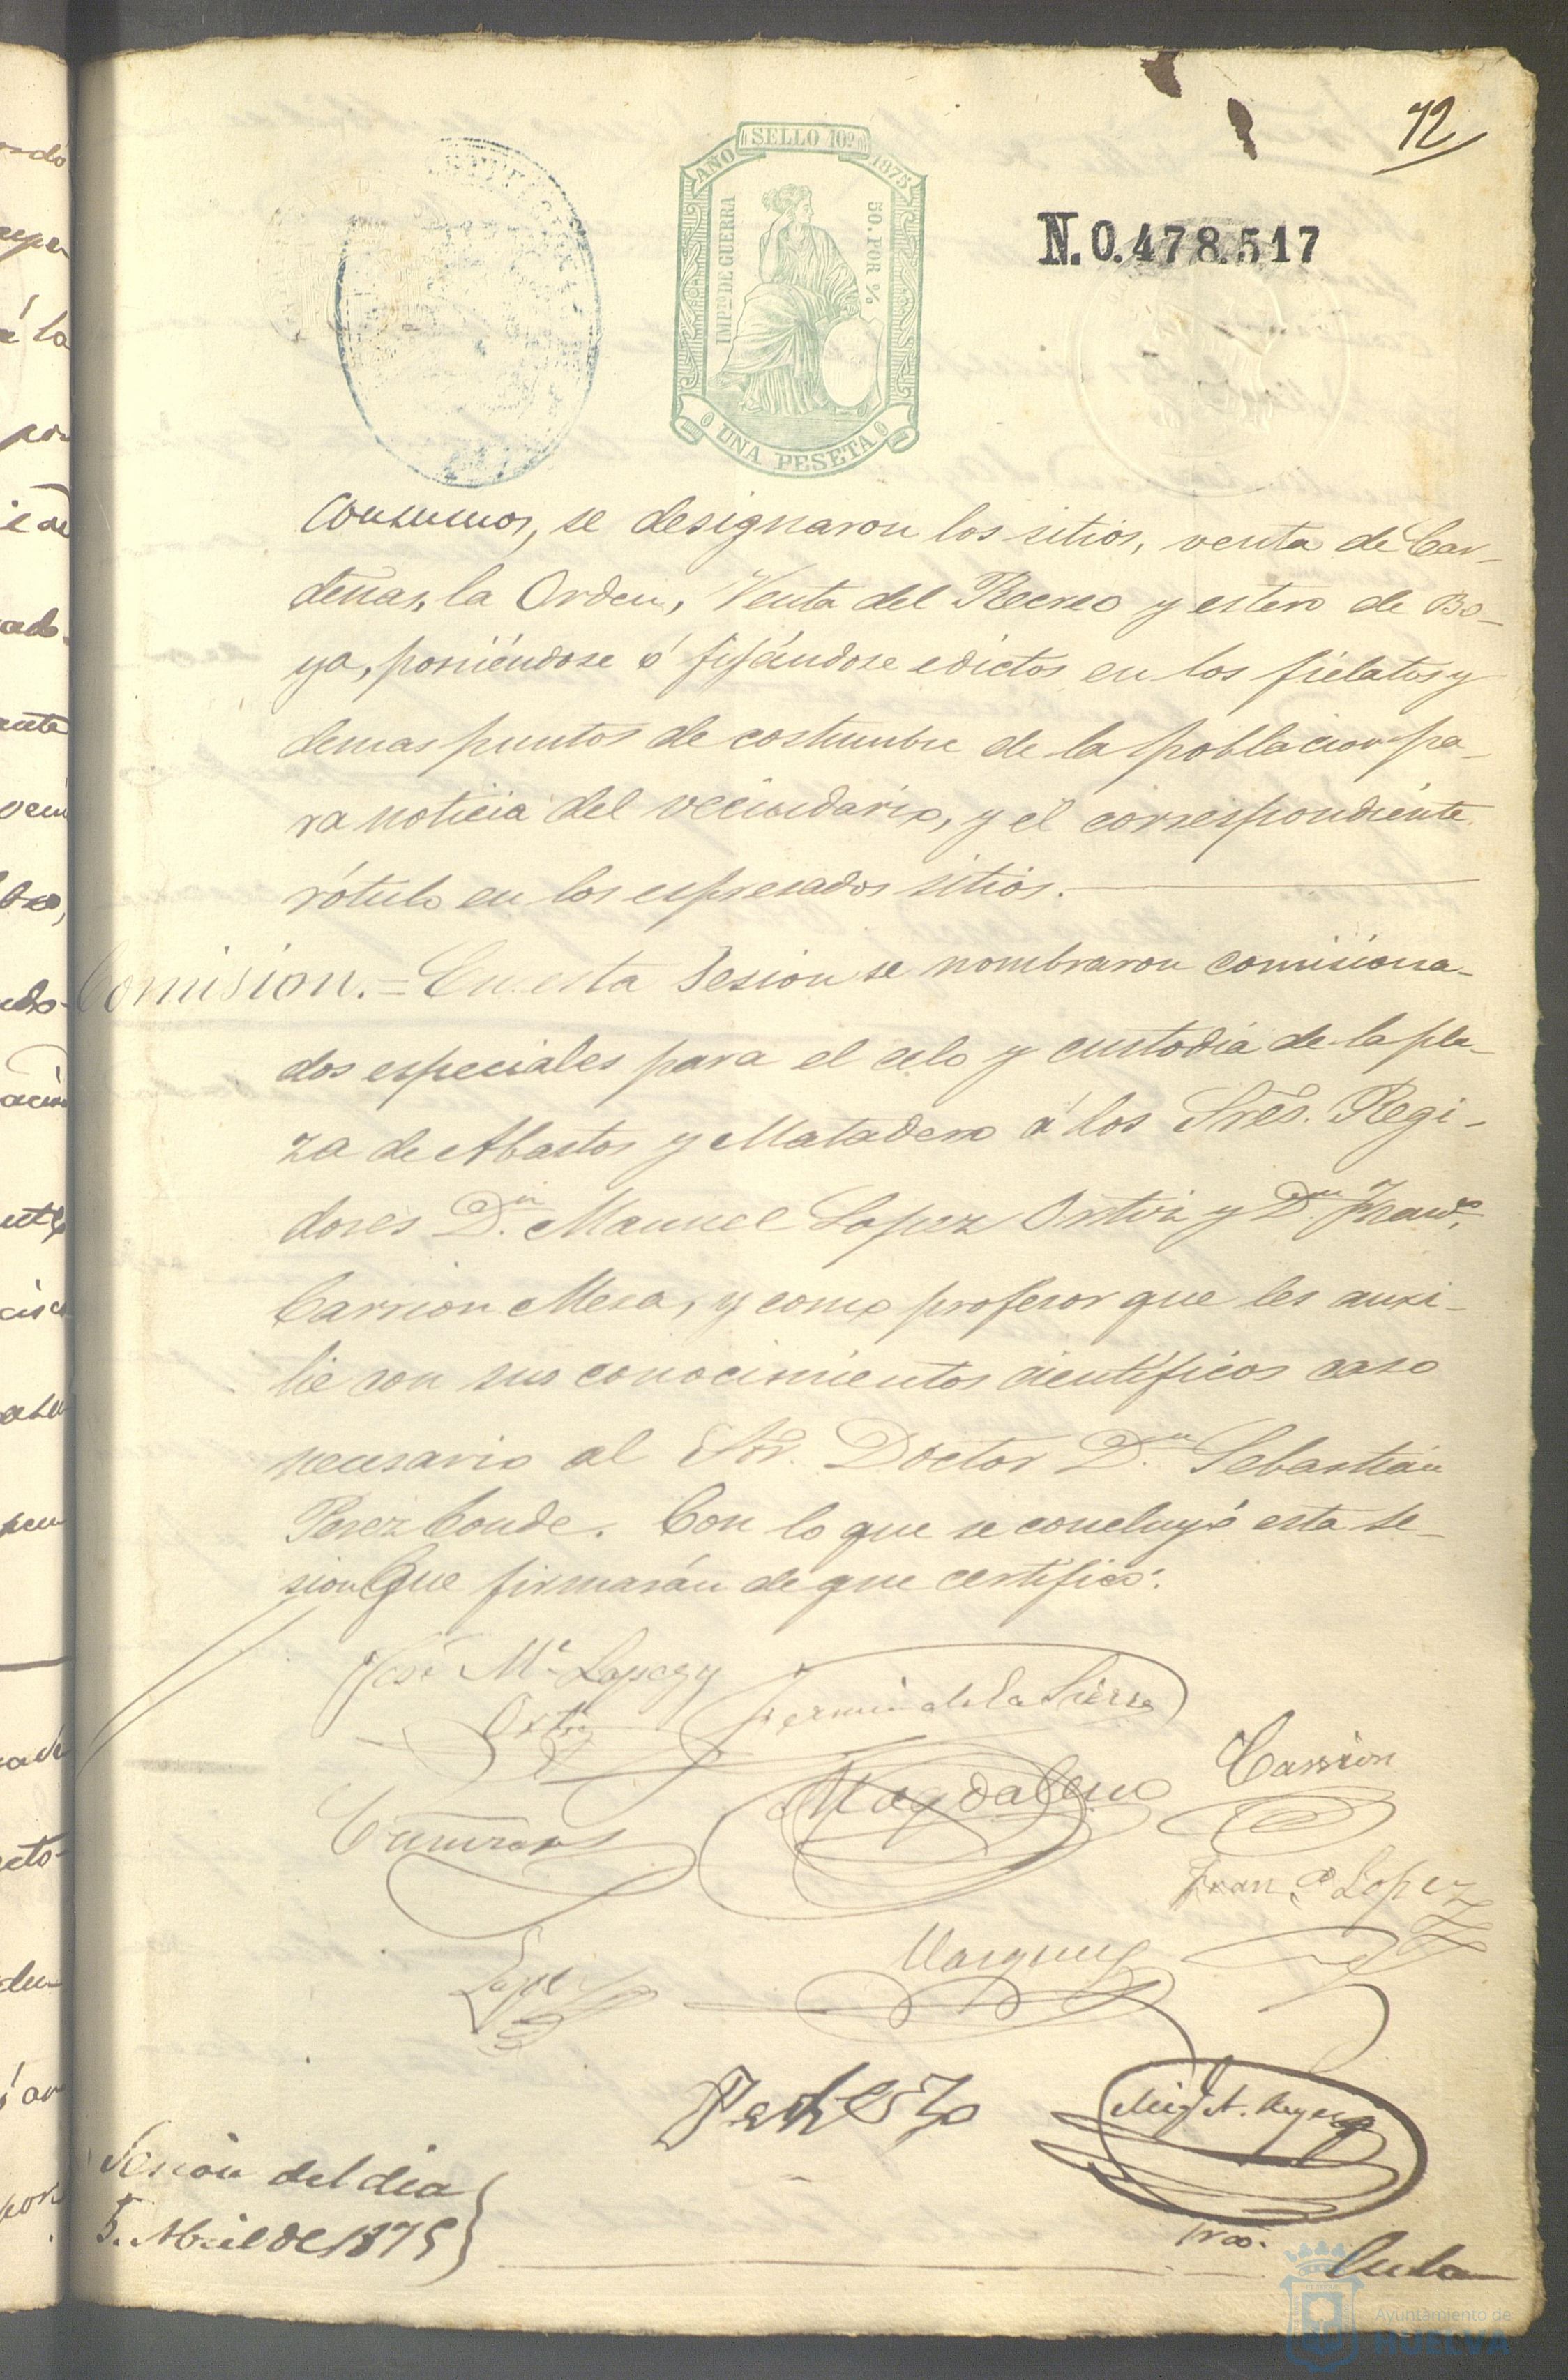 72
AÑO SELLO 10º 1875
IMPTO DE GUERRA
50 POR %
UNA PESETA
N.0.478.517
Consumos, se designaron los sitios, venta de Car-
denas, la Orden, Venta del Recreo y estero de Bo-
ya, poniéndose ó fijándose edictos en los fielatos y
demas puntos de costumbre de la poblacion pa-
ra noticia del vecindario, y el correspondiente
rótulo en los espresados sitios.
Comision. = En esta Sesion se nombraron comisiona-
dos especiales para el celo y custodia de la pla-
za de Abastos y Matadero á los Sres. Regi-
dores Dn. Manuel Lopez Ortiz y Dn. Franco.
Carrion Mesa, y como profesor que les auxi-
lie con sus conocimientos científicos caso
necesario al Sr. Doctor Dn. Sebastián
Perez Conde. Con lo que se concluyó esta se-
sion que firmarán de que certifico.
José Ma. Lopez y
Ortiz
Fermin de la Sierra
Carrion
Magdaleno
Franco Lopez
Lopez
Marquez
Sesion del dia
5. Abril de 1875
En la
Ayuntamiento de
HUELVA